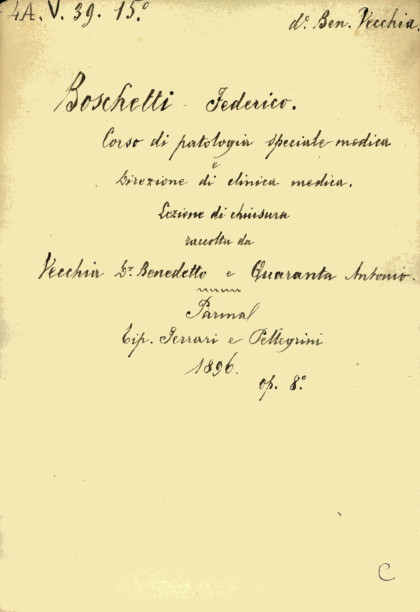 4A. V. 39. 15.º
d.º Ben. Vecchia.
Boschetti Federico.
Corso di patologia speciale medica
e
Direzione di clinica medica.
Lezione di chiusura
raccolta da
Vecchia Dr. Benedetto e Quaranta Antonio.
Parma
Tip. Ferrari e Pellegrini
1896.
op. 8.º
C